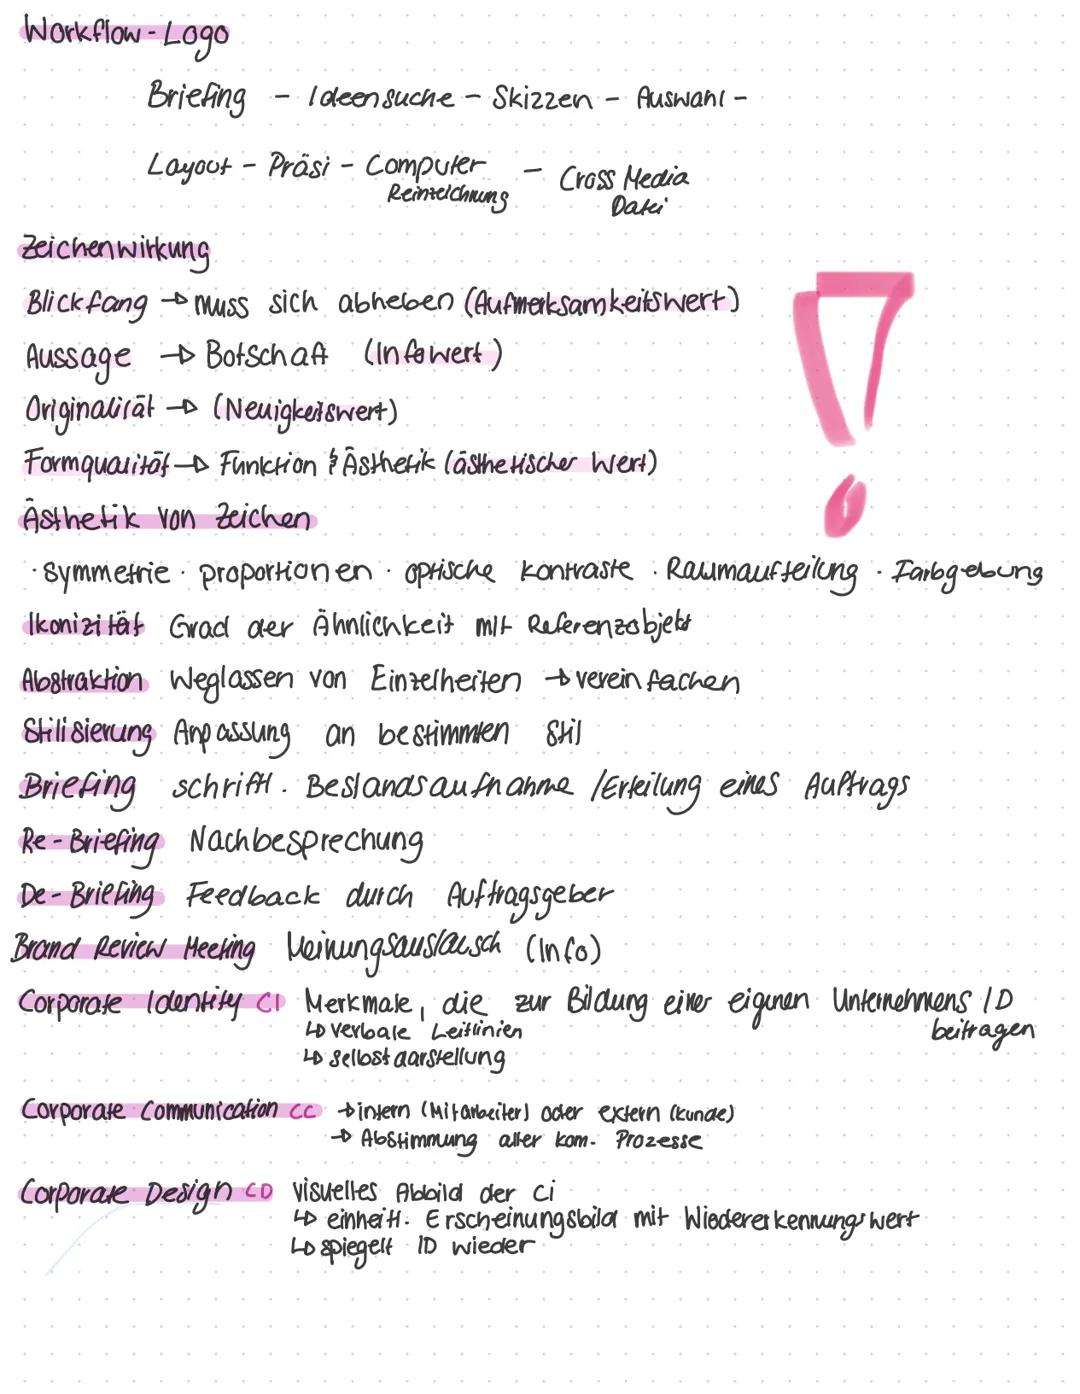 Workflow - Logo
Briefing - Ideensuche - Skizzen - Auswahl -
Layout - Präsi - Computer - Cross Media
Reinzeichnung Datei
Zeichenwirkung
Blickfang → muss sich abheben (Aufmerksamkeitswert)
Aussage → Botschaft (Infowert)
Originalität → (Neuigkeitswert)
Formqualität → Funktion & Ästhetik (ästhetischer Wert)
Ästhetik von Zeichen
· Symmetrie · proportionen · optische Kontraste · Raumaufteilung · Farbgebung
Ikonizität Grad der Ähnlichkeit mit Referenzobjekt
Abstraktion Weglassen von Einzelheiten → vereinfachen
Stilisierung Anpassung an bestimmten Stil
Briefing schriftl. Bestandsaufnahme / Erteilung eines Auftrags
Re-Briefing Nachbesprechung
De-Briefing Feedback durch Auftragsgeber
Brand Review Meeting Meinungsaustausch (Info)
Corporate Identity CI Merkmale, die zur Bildung einer eigenen Unternehmens ID
beitragen
↳ verbale Leitlinien
↳ selbstdarstellung
Corporate Communication CC → intern (Mitarbeiter) oder extern (Kunde)
→ Abstimmung aller kom. Prozesse
Corporate Design CD visuelles Abbild der Ci
↳ einheitl. Erscheinungsbild mit Wiedererkennungswert
↳ spiegelt ID wieder